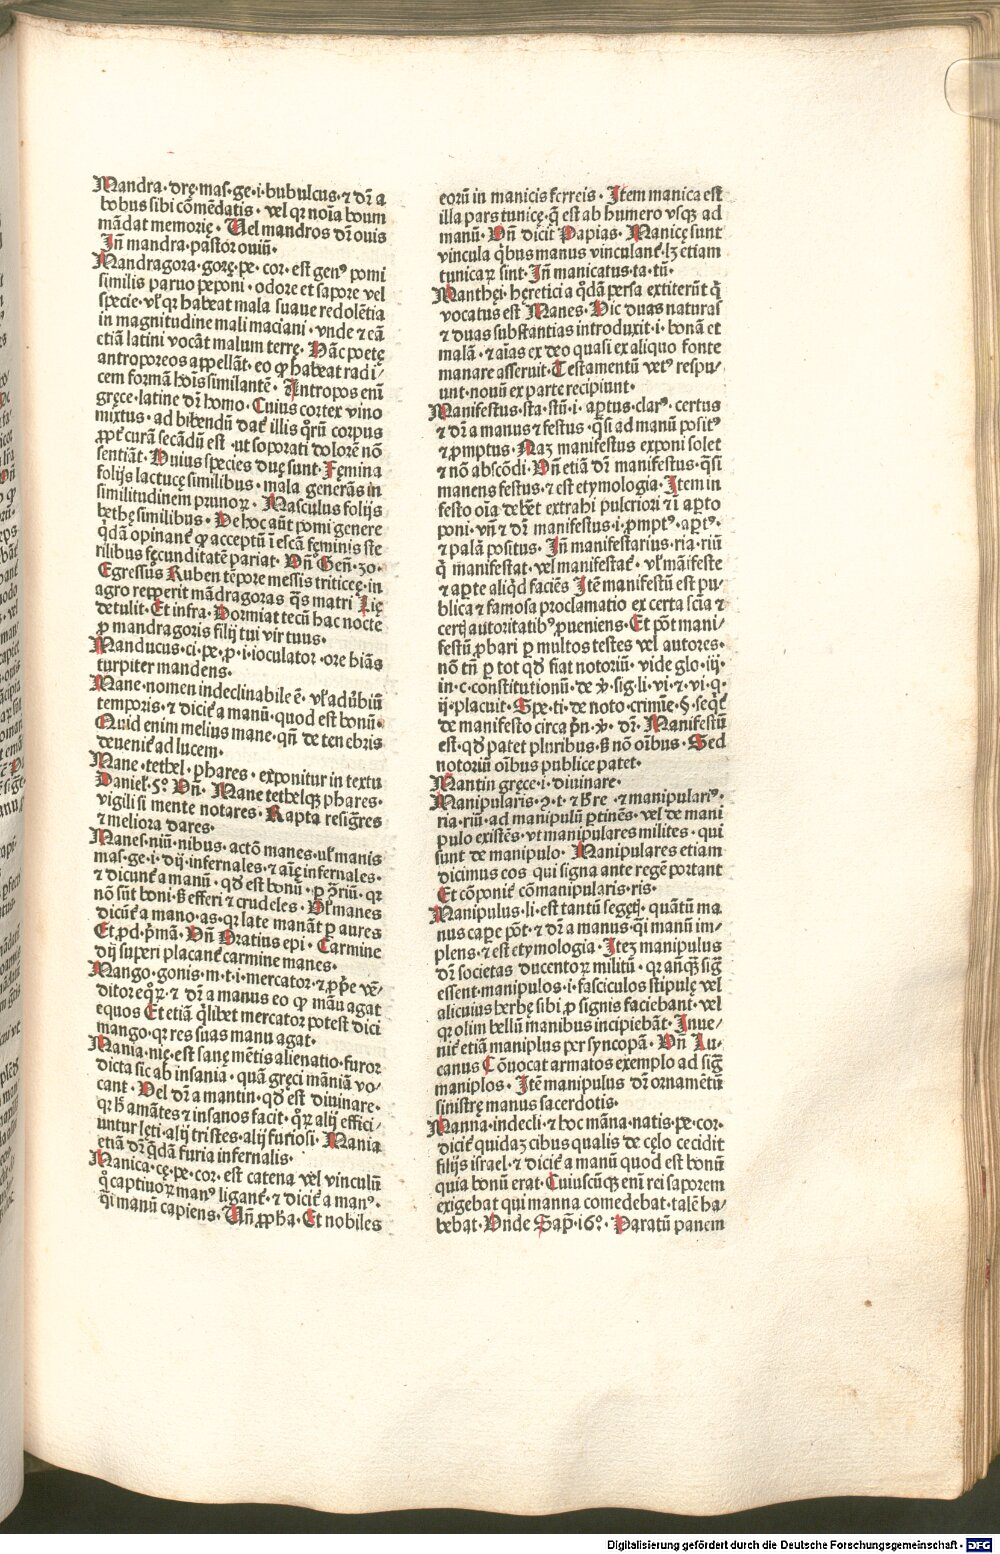 Mandra·drę·mas·ge·i·bubulcus·⁊ dr̄ a
bobus sibi cōmēdatis· vel qꝛ noīa boum
mādat memorię· Vel mandros dr̄ ouis
Jn̄ mandra·pastor ouiū·
Mandragora·gorę·pe·cor·est genꝰ pomi
similis paruo peponi·odore et sapore vel
specie·vl̓ qꝛ habeat mala suaue redolētia
in magnitudine mali maciani·vnde ⁊ eā
etiā latini vocāt malum terrę·Hāc poetę
antroporeos appellāt·eo ꝙ habeat radi/
cem formā hoīs similantē·Antropos enī
gręce·latine dr̄ homo·Cuius cortex vino
mixtus·ad bibendū dat̄ illis qͦrū corpus
ꝓpt̓ curā secādū est·ut soporati dolorē nō
sentiāt·Huius species duę sunt·Fęmina
folijs lactucę similibus·mala generās in
similitudinem prunoꝝ·Masculus folijs
bethę similibus·De hoc aūt pomi genere
qͥdā opinant̄ ꝙ acceptū ī escā fęminis ste
rilibus fęcunditatē pariat·Vn̄ Gen̄·30·
Egressus Ruben tēpore messis triticeę·in
agro repperit mādragoras qͣs matri Lię
detulit·Et infra·Dormiat tecū hac nocte
ꝓ mandragoris filij tui vir tuus·
Manducus·ci·pe·ꝓ·i·ioculator·ore hiās
turpiter mandens·
Mane·nomen indeclinabile ē·vl̓ adūbiū
temporis·⁊ dicit̄ a manū·quod est bonū·
Quid enim melius mane·qn̄ de ten ebris
deuenit̄ ad lucem·
Mane·tethel·phares·exponitur in textu
Daniel̓·5º·Vn̄·Mane tethelqꝫ phares·
vigili si mente notares·Rapta resigr̄es
⁊ meliora dares·
Manes·niū·nibus·actō manes·ul̓ manis
mas·ge·i·dij infernales·⁊ aīę infernales·
⁊ dicunt̄ a manū·qd̓ est bonū·ꝑ ɔ̄riū·qꝛ
nō sūt boni·ß efferi ⁊ crudeles·Vl̓ manes
dicūt̄ a mano·as·qꝛ late manāt ꝑ aures
Et·ꝓd·pͥmā·Vn̄ Oratius epi·Carmine
dij superi placant̄ carmine manes·
Mango·gonis·m·t·i·mercator·⁊ ꝓpͥe vē/
ditor eqͦꝝ·⁊ dr̄ a manus eo ꝙ māu agat
equos Et etiā qͥlibet mercator potest dici
mango·qꝛ res suas manu agat·
Mania·nię·est sanę mētis alienatio·furor
dicta sic ab insania·quā gręci māniā vo/
cant·Vel dr̄ a mantin·qd̓ est diuinare·
qꝛ h̓ amātes ⁊ insanos facit·qͦꝝ alij effici/
untur lęti·alij tristes·alij furiosi·Mania
etiā dr̄ qͥdā furia infernalis·
Manica·cę·pe·cor·est catena vel vinculū
qͦ captiuoꝝ manꝰ ligant̄·⁊ dicit̄ a manꝰ·
qͣi manū capiens·Vn̄ ꝓph̓a·Et nobiles
eorū in manicis ferreis·Jtem manica est
illa pars tunicę·q̄ est ab humero vsqꝫ ad
manū·Vn̄ dicit Papias·Manicę sunt
vincula qͥbus manus vinculant̄·lꝫ etiam
tunicaꝝ sint·Jn̄ manicatus·ta·tū·
Manthęi·heretici a qͦdā persa extiterūt qͥ
vocatus est Manes·Hic duas naturas
⁊ duas substantias introduxit·i·bonā et
malā·⁊ aīas ex deo quasi ex aliquo fonte
manare asseruit·Testamentū vetꝰ respu/
unt·nouū ex parte recipiunt·
Manifestus·sta·stū·i·aꝑtus·clarꝰ·certus
⁊ dr̄ a manus ⁊ festus·qͣsi ad manū positꝰ
⁊ ꝓmptus·Naꝫ manifestus exponi solet
⁊ nō abscōdi·Vn̄ etiā dr̄ manifestus·qͣsi
manens festus·⁊ est etymologia·Jtem in
festo oīa debēt extrahi pulcriori ⁊ ī aꝑto
poni·vn̄ ⁊ dr̄ manifestus·i·ꝓmptꝰ·aꝑtꝰ·
⁊ palā positus·Jn̄ manifestarius·ria·riū
qͥ manifestat·vel manifestat̄·vl̓ māifeste
⁊ aꝑte aliqͥd faciēs Jtē manifestū est pu/
blica ⁊ famosa proclamatio ex certa sc̄ia ⁊
certꝭ autoritatibꝰ ꝓueniens·Et pōt mani/
festū ꝓbari ꝑ multos testes vel autores·
nō tn̄ ꝑ tot qd̓ fiat notoriū·vide glo·iij·
in·c·constitutionū·de v̓·sig·li·vi·⁊·vi·q·
ij·placuit·Spe·ti·de noto·crimīe·§·seqͥt̄
de manifesto circa pͥn·v̓·dr̄·Manifestū
est·qd̓ patet pluribus·ß nō oībus·Sed
notoriū oībus publice patet·
Mantin gręce·i·diuinare·
Manipularis·ɔ·t·⁊ h̓ re·⁊ manipulariꝰ·
ria·riū·ad manipulū ꝑtinēs·vel de mani
pulo existēs·vt manipulares milites·qui
sunt de manipulo·Manipulares etiam
dicimus eos qui signa ante regē portant
Et cōponit̄ cōmanipularis·ris·
Manipulus·li·est tantū segetꝭ·quātū ma
nus capꝑe pōt·⁊ dr̄ a manus·qͣi manū im/
plens·⁊ est etymologia·Jteꝫ manipulus
dr̄ societas ducentoꝝ militū·qꝛ anqͣꝫ sigͣ
essent·manipulos·i·fasciculos stipulę vel
alicuius herbę sibi ꝓ signis faciebant·vel
qꝛ olim bellū manibus incipiebāt·Jnue/
nit̄ etiā maniplus per syncopā·Vn̄ Lu/
canus Cōuocat armatos exemplo ad sigͣ
maniplos·Jtē manipulus dr̄ ornamētū
sinistrę manus sacerdotis·
Manna·indecli·⁊ hoc māna·natis·pe·cor·
dicit̄ quidaꝫ cibus qualis de cęlo cecidit
filijs israel·⁊ dicit̄ a manū quod est bonū
quia bonū erat·Cuiuscūqꝫ enī rei saporem
exigebat qui manna comedebat·talē ha/
bebat·Vnde Sap̄·16º·Paratū panem
Digitalisierung gefördert durch die Deutsche Forschungsgemeinschaft - DFG